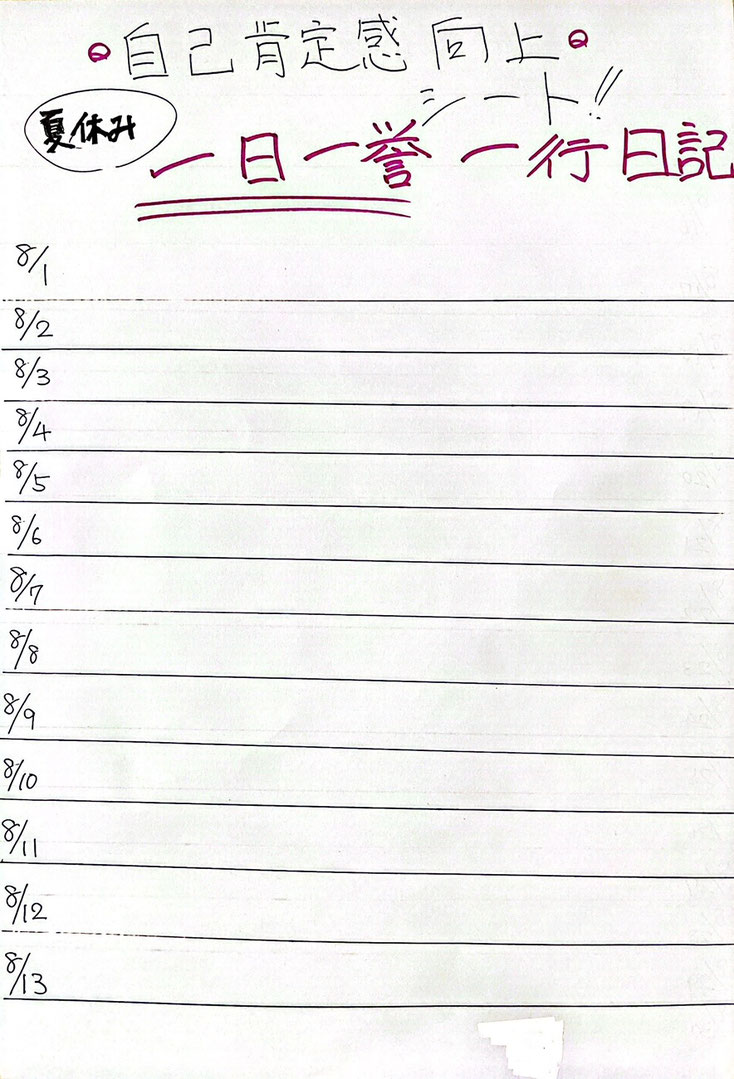 自己肯定感向上
シート!!
夏休み
一日一誉 一行日記
8/1
8/2
8/3
8/4
8/5
8/6
8/7
8/8
8/9
8/10
8/11
8/12
8/13